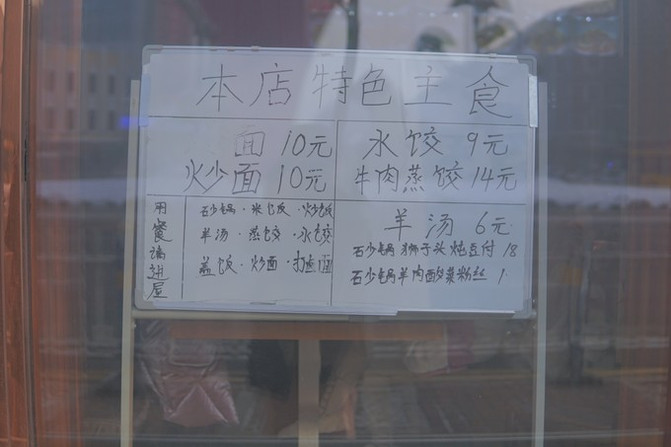 本店特色主食
面 10元
炒面 10元
水饺 9元
牛肉蒸饺 14元
用餐请进屋
砂锅·米饭·炒饭
羊汤·蒸饺·水饺
盖饭·炒面·打卤面
羊汤 6元
砂锅狮子头炖豆付 18
砂锅羊肉酸菜粉丝 1